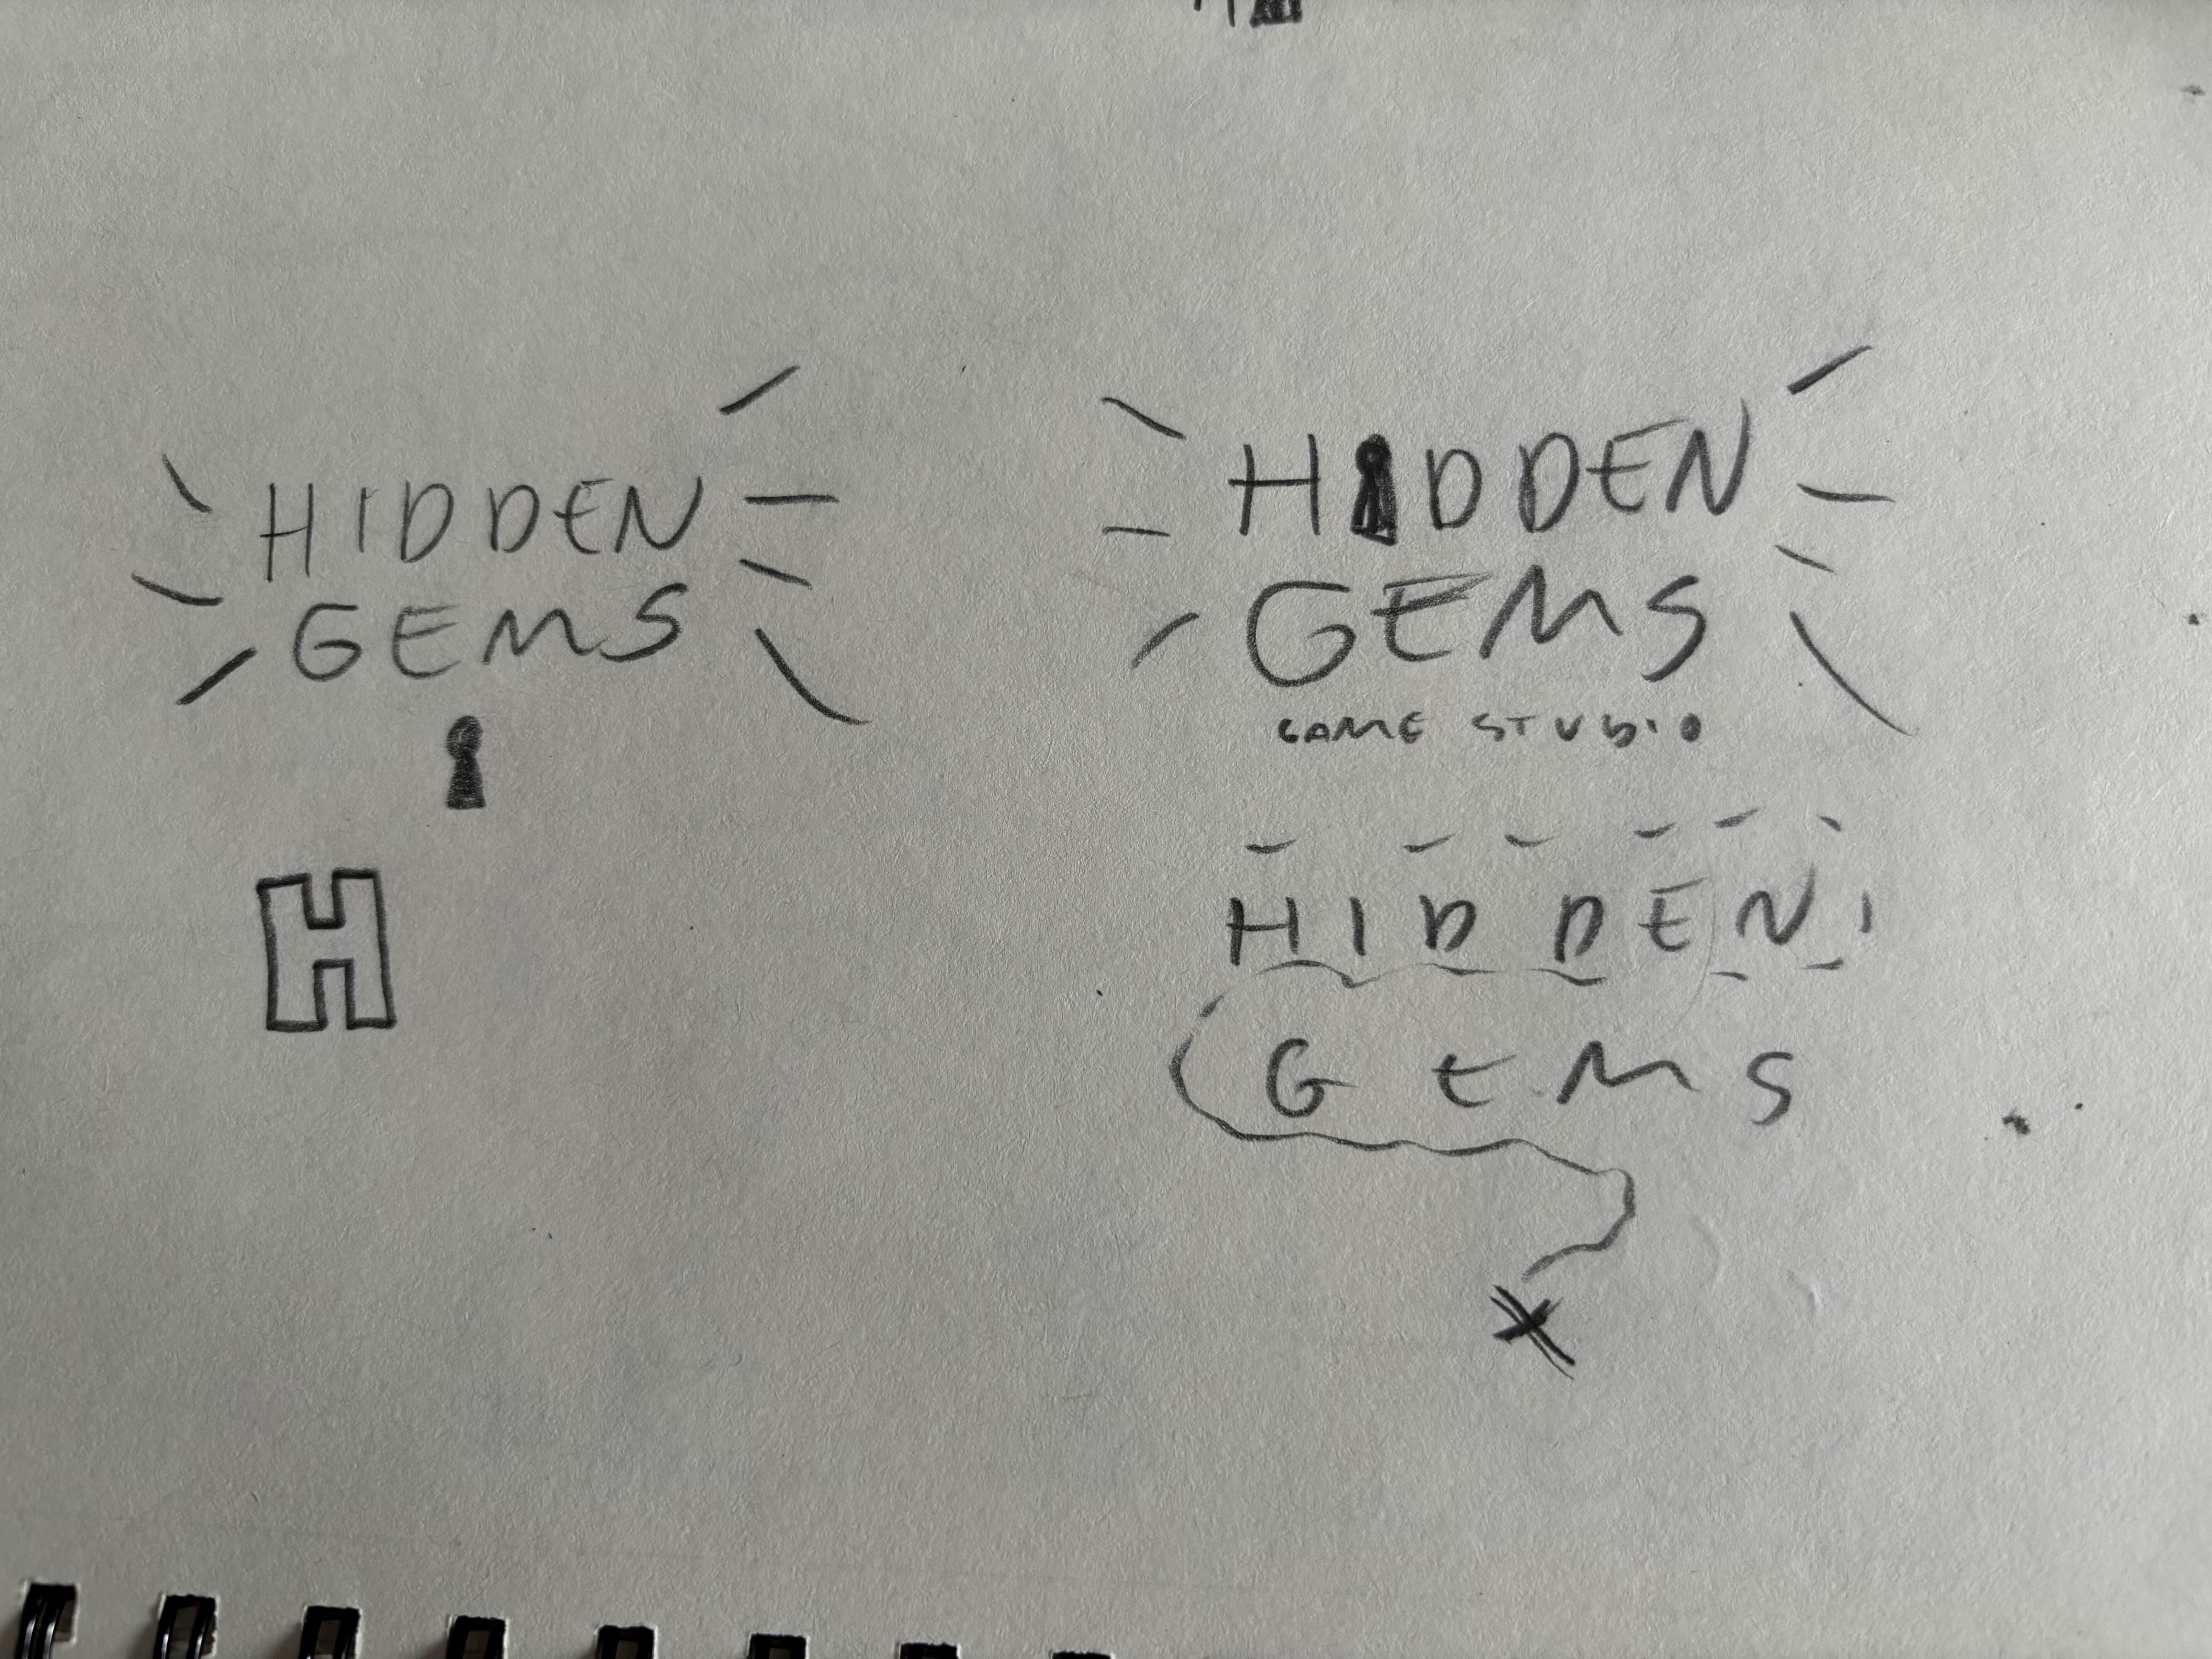 HIDDEN
GEMS
H
HIDDEN
GEMS
GAME STUDIO
HIDDEN
GEMS
X